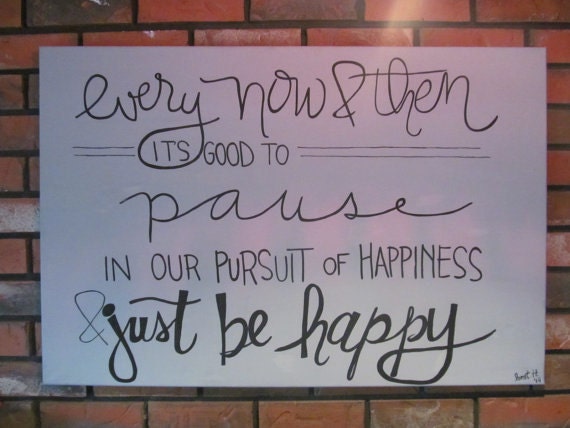 every now & then
IT'S GOOD TO
pause
IN OUR PURSUIT OF HAPPINESS
& just be happy